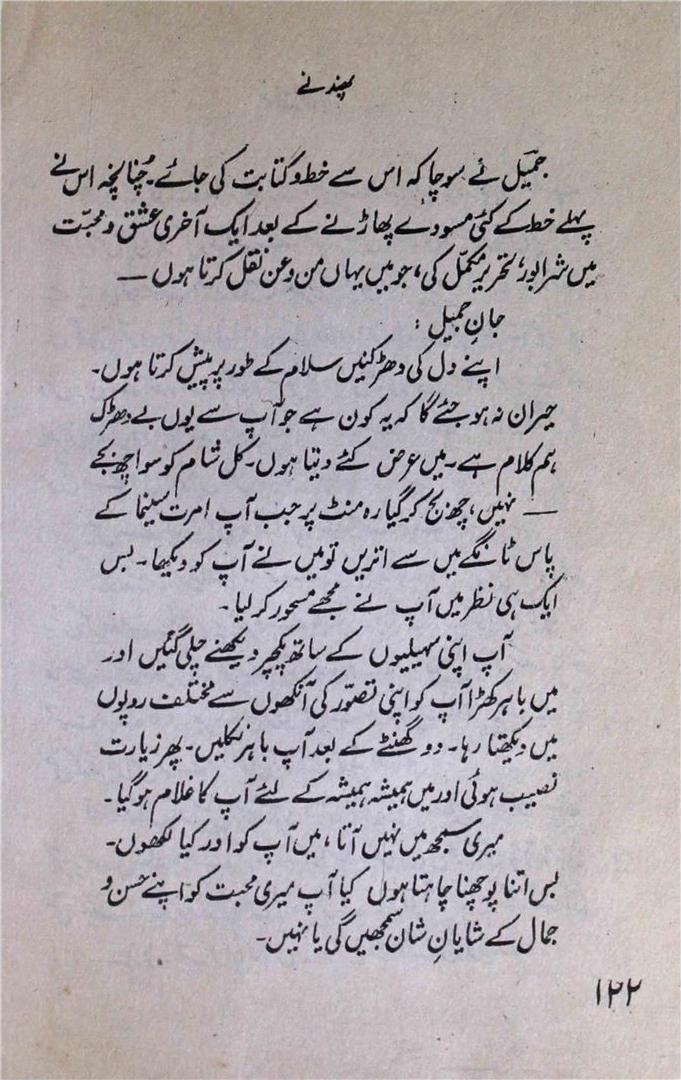 پھندنے
جمیل نے سوچا کہ اس سے خط و کتابت کی جائے۔ چنانچہ اس نے
پہلے خط کے کئی مسودے پھاڑنے کے بعد ایک آخری عشق و محبّت
میں شرابور، تحریر مکمّل کی، جو میں یہاں من و عن نقل کرتا ہوں —
جانِ جمیل :
اپنے دل کی دھڑکنیں سلام کے طور پر پیش کرتا ہوں۔
حیران نہ ہو جئے گا کہ یہ کون ہے جو آپ سے یوں بے دھڑک
ہم کلام ہے۔ میں عرض کئے دیتا ہوں۔ کل شام کو سوا چھ بجے
— نہیں، چھ بج کر گیارہ منٹ پر جب آپ امرت سینما کے
پاس ٹانگے میں سے اتریں تو میں نے آپ کو دیکھا۔ بس
ایک ہی نظر میں آپ نے مجھے مسحور کر لیا۔
آپ اپنی سہیلیوں کے ساتھ پکچر دیکھنے چلی گئیں اور
میں باہر کھڑا آپ کو اپنی تصوّر کی آنکھوں سے مختلف روپوں
میں دیکھتا رہا۔ دو گھنٹے کے بعد آپ باہر نکلیں۔ پھر زیارت
نصیب ہوئی اور میں ہمیشہ ہمیشہ کے لئے آپ کا غلام ہو گیا۔
میری سمجھ میں نہیں آتا، میں آپ کو اور کیا لکھوں۔
بس اتنا پوچھنا چاہتا ہوں کیا آپ میری محبت کو اپنے حسن و
جمال کے شایانِ شان سمجھیں گی یا نہیں۔
۱۲۲